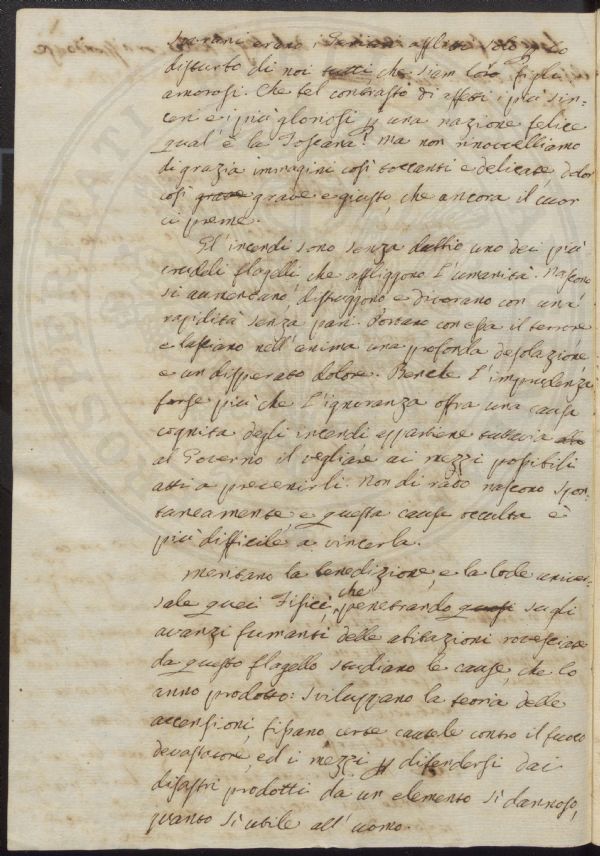 Sovrani erano i Genitori afflitti solo per lo
disturbo di noi tutti, che siam loro figli
amorosi. Che bel contrasto di affetti i più sin=
ceri e i più gloriosi per una nazione felice
qual'è la Toscana! Ma non rinnovelliamo
di grazia immagini così toccanti e delicate, dolor
così grave grave e giusto, che ancora il cuor
ci preme.
Gl'incendi sono senza dubbio uno dei più
crudeli flagelli, che affliggono l'umanità. Nascono
si aumentano, distruggono e divorano con una
rapidità senza pari. Portano con essa il terrore
e lasciano nell'anima una profonda desolazione
e un disperato dolore. Benchè l'imprudenza
forse più che l'ignoranza offra una causa
cognita degli incendi appartiene tuttavia
al Governo il vegliare ai mezzi possibili
atti a prevenirli. Non di rado nascono spon=
taneamente, e questa causa occulta è
più difficile a vincerla.
Meritano la benedizione, e la lode univer=
sale quei Fisici, che penetrando quasi sugli
avanzi fumanti delle abitazioni rovesciate
da questo flagello studiano le cause, che lo
anno prodotto: sviluppano la teoria delle
accensioni, fissano certe cautele contro il fuoco
devastatore, ed i mezzi per difendersi dai
disastri prodotti da un elemento sì dannoso,
quanto sì utile all'uomo.